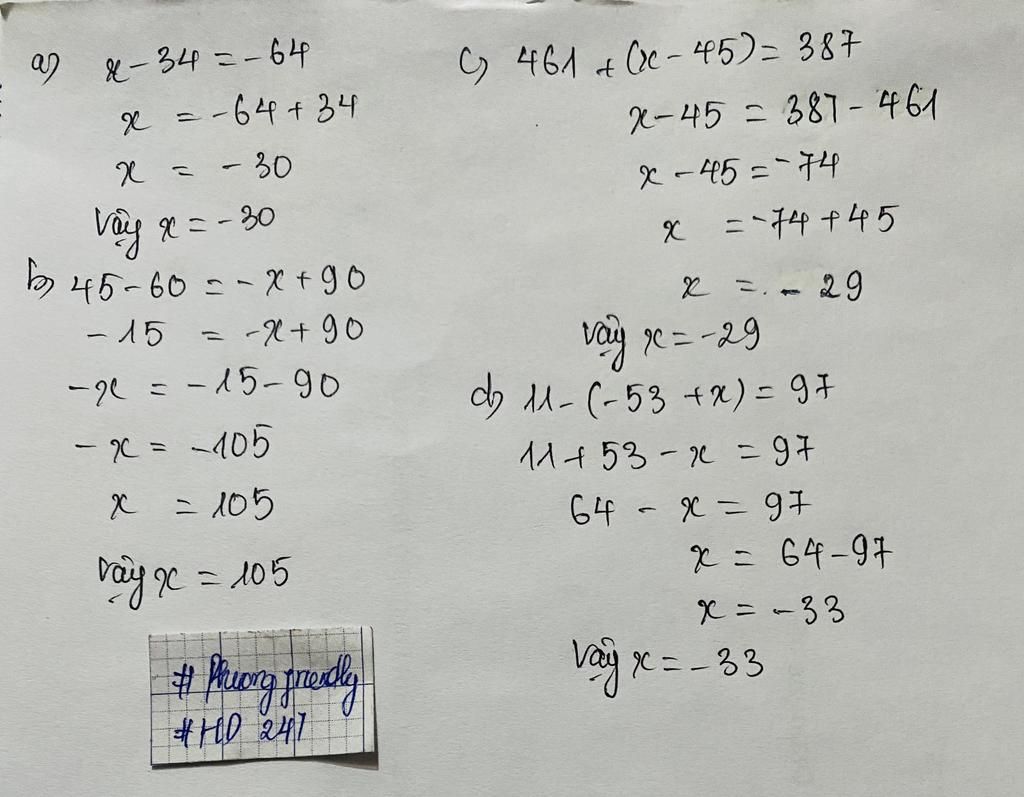 a) x - 34 = -64
x = -64 + 34
x = -30
Vậy x = -30
b) 45 - 60 = -x + 90
-15 = -x + 90
-x = -15 - 90
-x = -105
x = 105
Vậy x = 105
# Phuong friendly
#HD 247
c) 461 + (x - 45) = 387
x - 45 = 387 - 461
x - 45 = -74
x = -74 + 45
x = - 29
Vậy x = -29
d) 11 - (-53 + x) = 97
11 + 53 - x = 97
64 - x = 97
x = 64 - 97
x = -33
Vậy x = -33